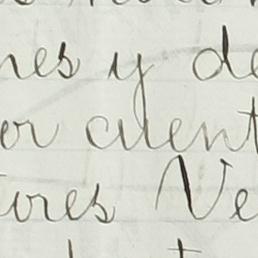 nes y de
or cuent
ores Ve